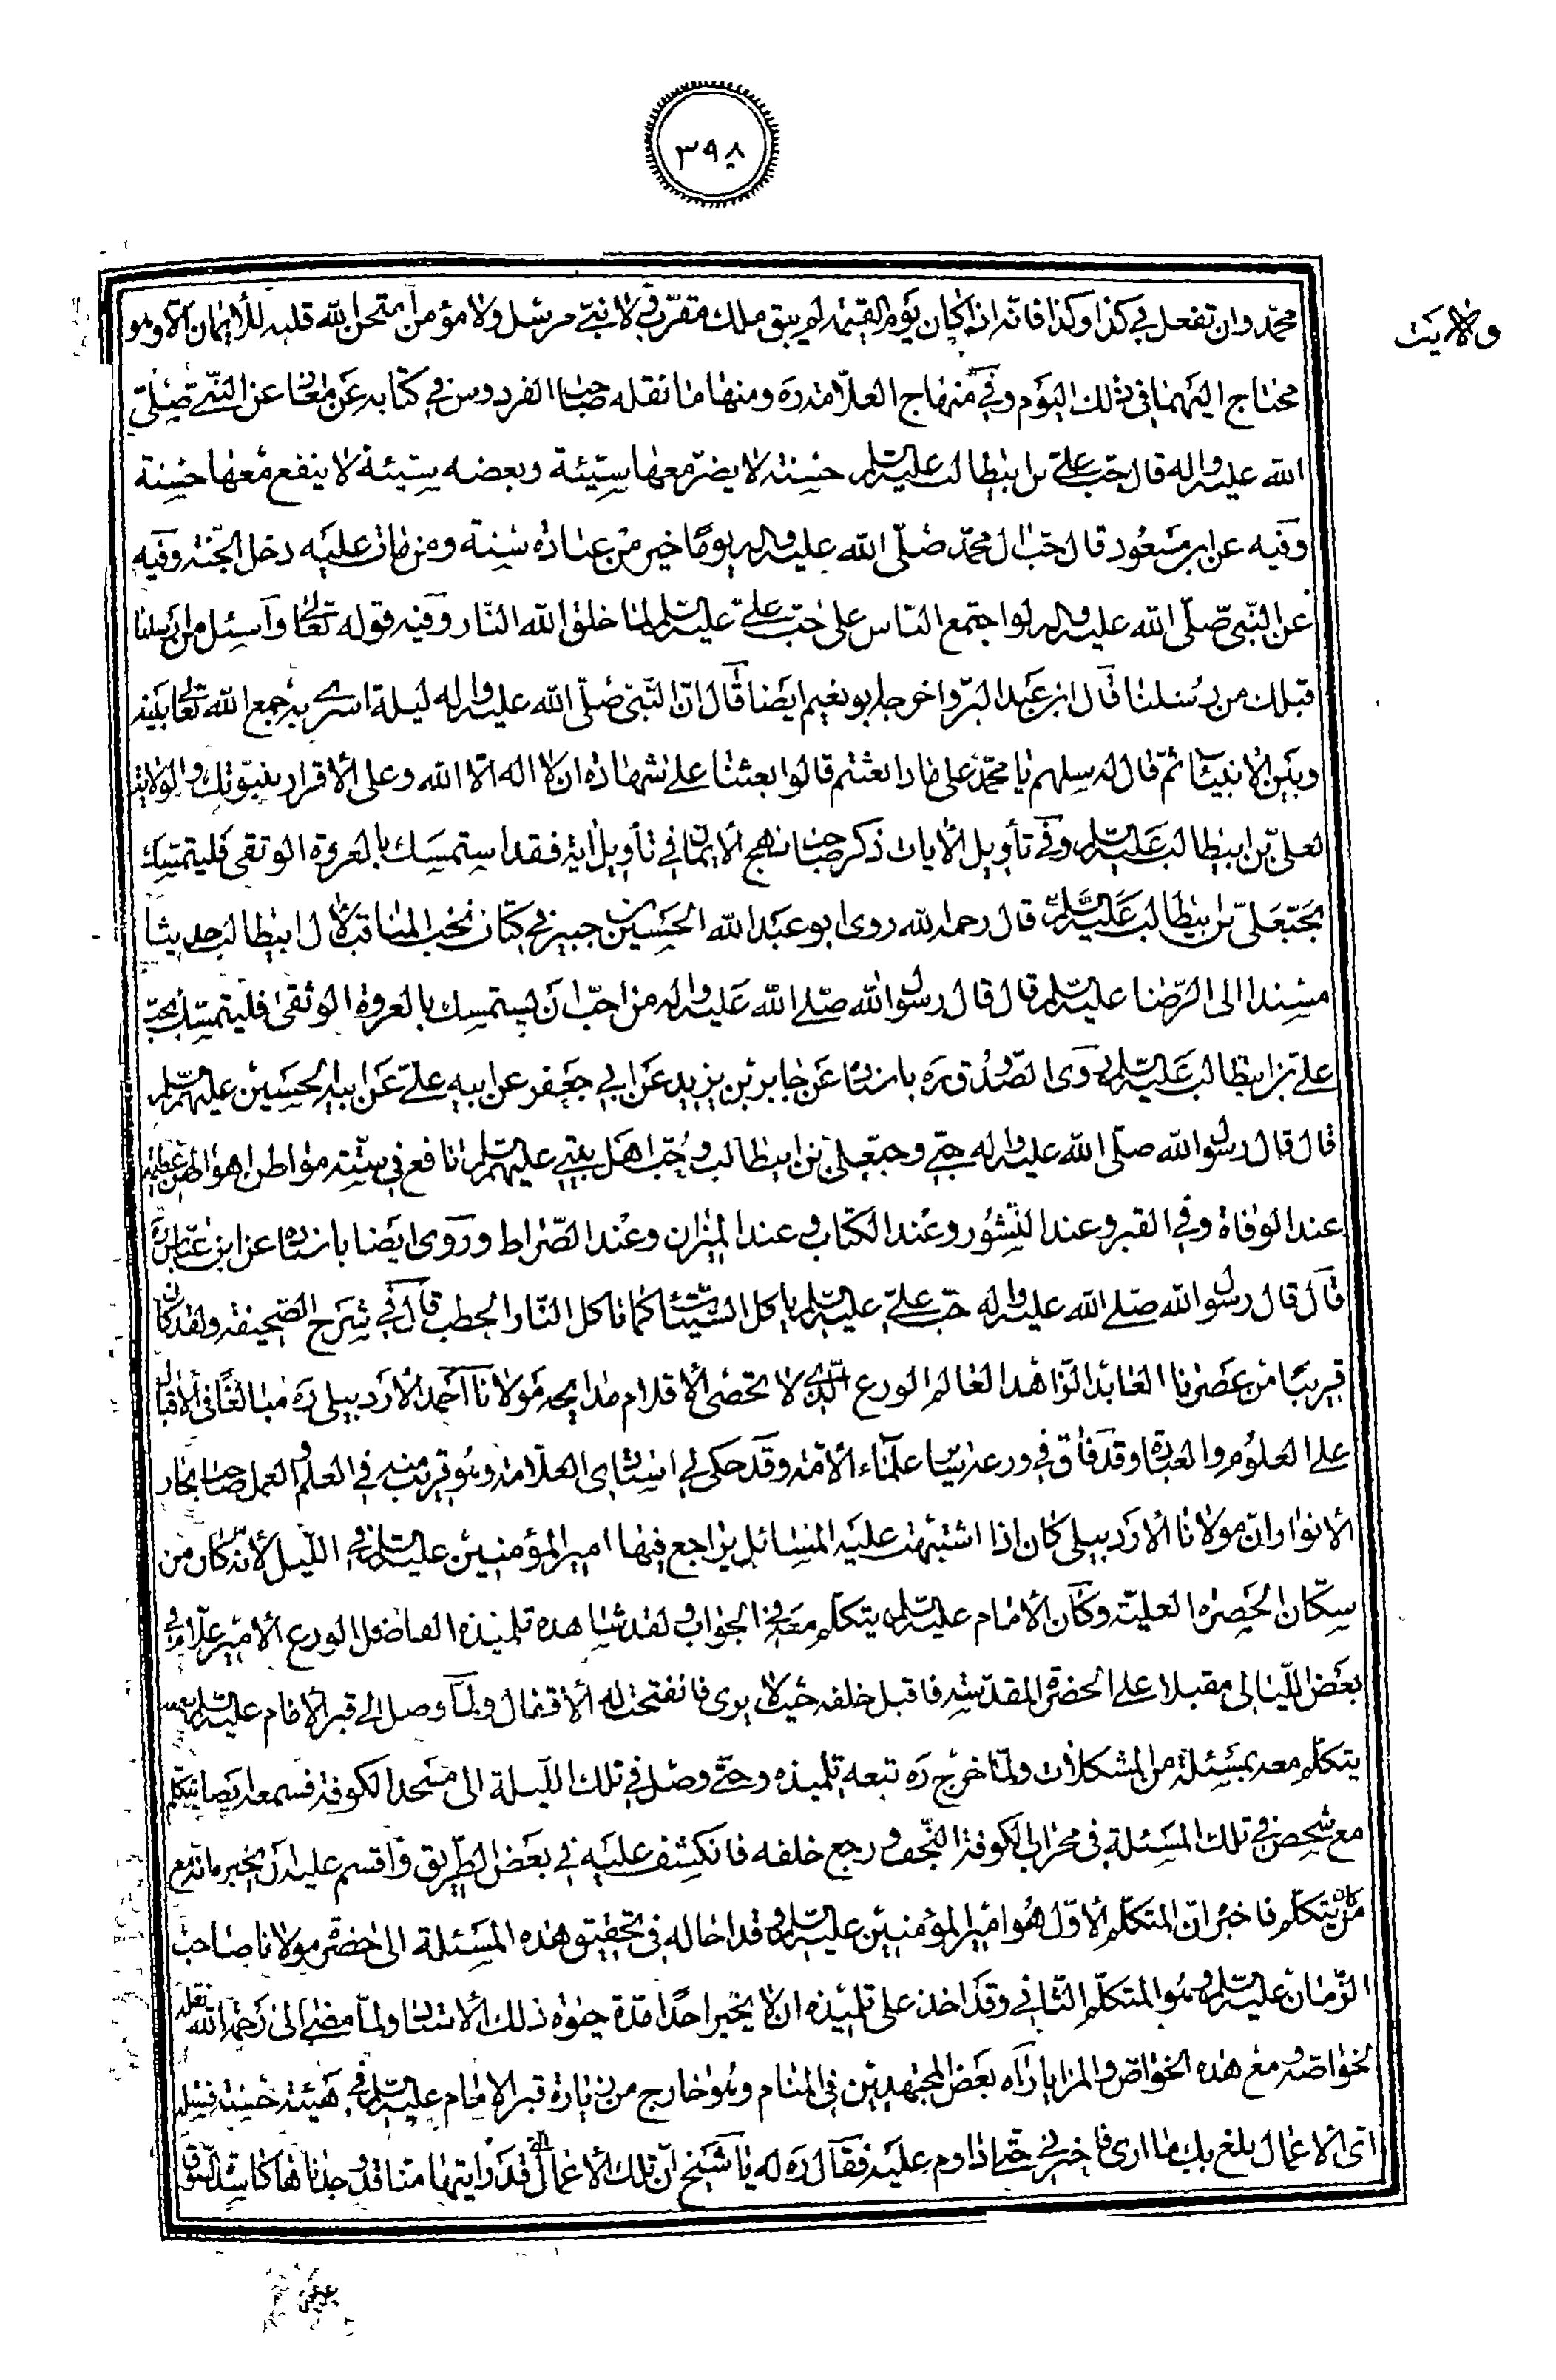 ٣٩٨
ولايت
محمّد وان تفعل بي كذا وكذا فانّه اذا كان يوم القيمة لم يبق ملك مقرّب ولا نبيّ مرسل ولا مؤمن امتحن الله قلبه للأيمان الّا وهو
محتاج اليهما في ذلك اليوم وفي منهاج العلّامة ره ومنها ما نقله صاحب الفردوس في كتابه عن معاذ عن النّبيّ صلّى
الله عليه واله قال حبّ عليّ بن ابيطالب عليه السلام حسنة لا يضرّ معها سيّئة وبعضه سيّئة لا ينفع معها حسنة
وفيه عن ابن مسعود قال حبّ ال محمّد صلّى الله عليه واله يومًا خير من عبادة سنة ومن مات عليه دخل الجنّة وفيه
عن النّبيّ صلّى الله عليه واله لو اجتمع النّاس على حبّ عليّ عليه السلام لما خلق الله النّار وفيه قوله تعالى واسئل من ارسلنا
قبلك من رسلنا قال ابن عبد البرّ واخرجه ابو نعيم ايضا قال انّ النّبيّ صلّى الله عليه واله ليلة اسري به جمع الله تعالى بينه
وبين الأنبياء ثمّ قال له سلهم يا محمّد على ماذا بعثتم قالوا بعثنا على شهادة ان لا اله الّا الله وعلى الأقرار بنبوّتك والولاية
لعليّ بن ابيطالب عليه السلام وفي تأويل الأيات ذكر صاحب نهج الأيمان في تأويل اية فقد استمسك بالعروة الوثقى فليتمسّك
بحبّ عليّ بن ابيطالب عليه السلام قال رحمه الله روى ابو عبد الله الحسين بن جبير في كتاب نخب المناقب لأل ابيطالب حديثا
مسندا الى الرّضا عليه السلام قال قال رسول الله صلّى الله عليه واله من احبّ ان يستمسك بالعروة الوثقى فليتمسّك بحبّ
عليّ بن ابيطالب عليه السلام وروى الصّدوق ره باسناده عن جابر بن يزيد عن ابي جعفر عن ابيه عليّ عن ابيه الحسين عليهم السلام
قال قال رسول الله صلّى الله عليه واله حبّي وحبّ عليّ بن ابيطالب وحبّ اهل بيتي عليهم السلام نافع في ستّة مواطن اهوالهنّ عظيم
عند الوفاة وفي القبر وعند النّشور وعند الكتاب وعند الميزان وعند الصّراط وروى ايضا باسناده عن ابن عبّاس ره
قال قال رسول الله صلّى الله عليه واله حبّ عليّ عليه السلام ياكل السّيّئات كما تاكل النّار الحطب قال في شرح الصّحيفة ولقد كان
قريبًا من عصرنا العابد الزّاهد العالم الورع الّذي لا تحصى الأقدام مدايحه مولانا احمد الأردبيلي ره مبالغًا في الأقبال
على العلوم والعبادة وقد فاق في ورعه سائر علماء الأمّة وقد حكى لي استادي العلّامة وهو قريب منه في العلم والعمل صاحب بحار
الأنوار انّ مولانا الأردبيلي كان اذا اشتبهت عليه المسائل يراجع فيها امير المؤمنين عليه السلام في اللّيل لأنّه كان من
سكّان الحضرة العليّة وكان الأمام عليه السلام يتكلّم معه في الجواب ولقد شاهده تلميذه الفاضل الورع الأمير علّام في
بعض اللّيالى مقبلا على الحضرة المقدّسة فاقبل خلفه حيث لا يرى فانفتحت له الأقفال ولمّا وصل الى قبر الأمام عليه السلام سمعه
يتكلّم معه بمسئلة من المشكلات ولمّا خرج ره تبعه تلميذه وحتّى وصل في تلك اللّيلة الى مسجد الكوفة فسمعه ايضا يتكلّم
مع شخص في تلك المسئلة في محراب الكوفة النّجف ورجع خلفه فانكشف عليه في بعض الطّريق واقسم عليه ان يخبره انّه مع
من كان يتكلّم فاخبر انّ المتكلّم الأوّل هو امير المؤمنين عليه السلام وقد احاله في تحقيق هذه المسئلة الى حضرة مولانا صاحب
الزّمان عليه السلام وهو المتكلّم الثّاني وقد اخذ على تلميذه ان لا يخبر احدًا مدّة حيوة ذلك الاستاد ولمّا مضى الى رحمة الله نقله
لخواصّه ومع هذه الخواصّ والمزايا راه بعض المجتهدين في المنام وهو خارج من زيارة قبر الامام عليه السلام في هيئة حسنة فسئله
اىّ الأعمال بلغ بك ما ارى فاخبرني حتّى اداوم عليه فقال ره له يا شيخ انّ تلك الأعمال الّتي قد رايتها منّا قد وجدناها كاسدة السّوق